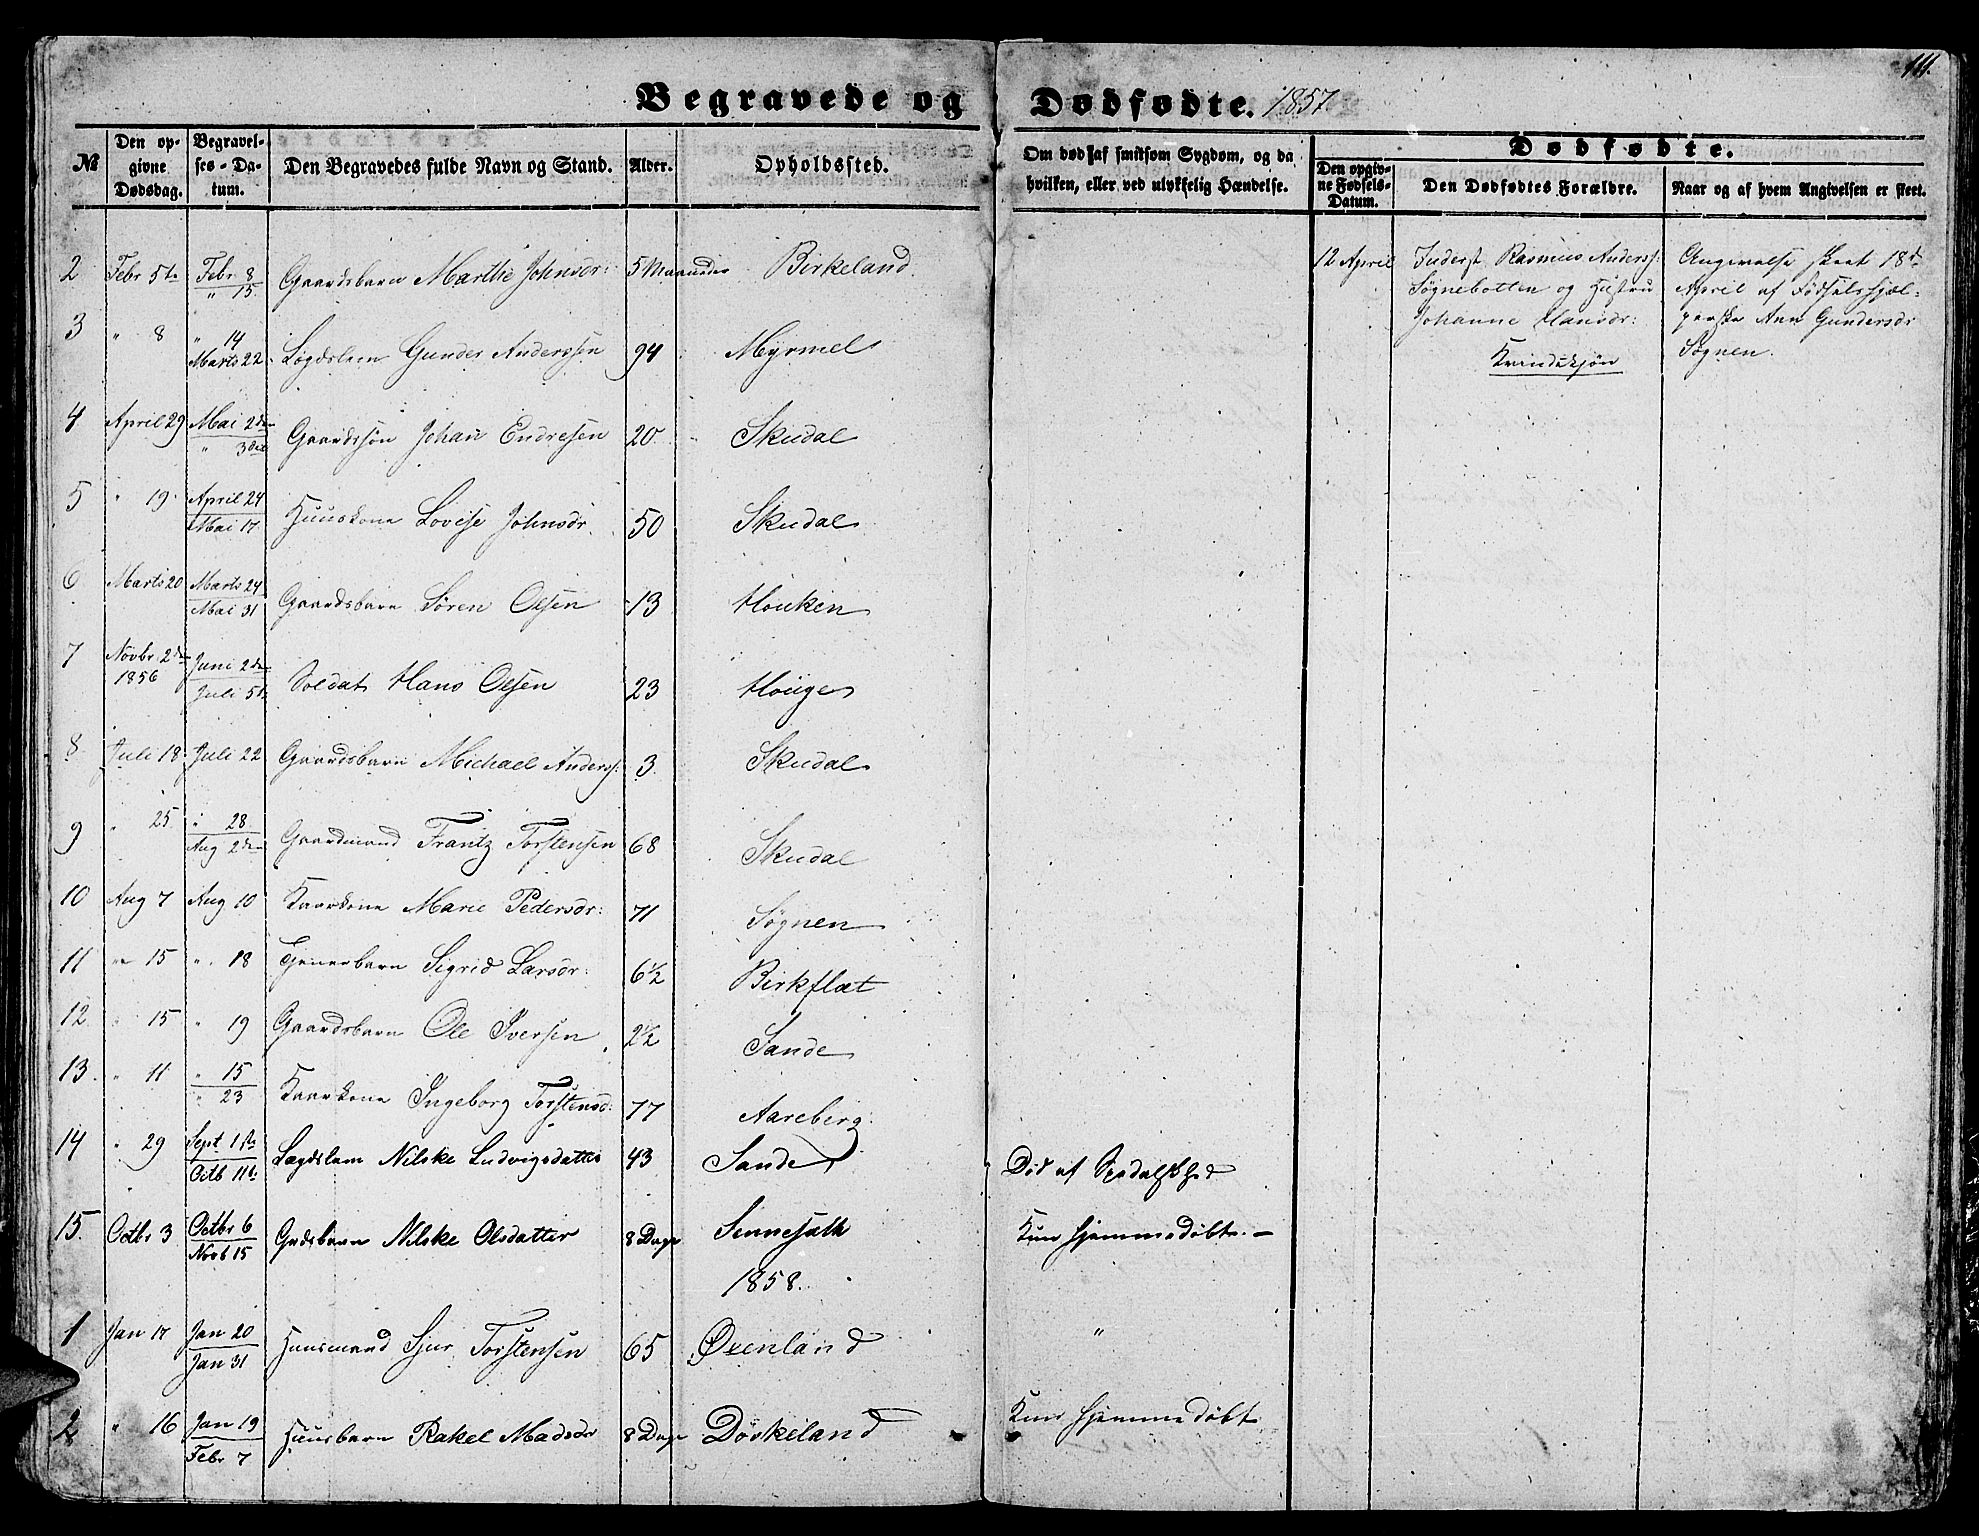 111.
Begravede og Dødfødte. 1857
№ Den opgivne Dødsdag. Begravelses-Datum. Den Begravedes fulde Navn og Stand. Alder. Opholdssted. Om død af smitsom Sygdom, og da hvilken, eller ved ulykkelig Hændelse. Dødfødte.
Den opgivne Fødsels-Datum. Den Dødfødtes Forældre. Naar og af hvem Angivelsen er skeet.
2 Febr 5te Febr 8 " 15 Gaardsbarn Marthe Johnsdr: 5 Maaneder Birkeland
12 April Inderst Rasmus Anderss: Angivelse skeet 18de
Søgnebotten og Hustru April af Fødselshjæl-
Johanne Hansdr: perske Ann Gundersdr
Kvindekjøn Søgnen.
3 " 8 " 14 Marts 22 Lægdslem Gunder Anderssen 94 Myrmel
4 April 29 Mai 2den " 3die Gaardssøn Johan Endresen 20 Skudal
5 " 19 April 24 Mai 17 Huuskone Lovise Johnsdr. 50 Skudal
6 Marts 20 Marts 24 Mai 31 Gaardsbarn Søren Olsen 13 Houken
7 Novbr 2den 1856 Juni 2den Juli 5te Soldat Hans Olsen 23 Houge
8 Juli 18 Juli 22 Gaardsbarn Michael Anderss: 3 Skudal
9 " 25 " 28 Aug 2den Gaardmand Frantz Torstensen 68 Skudal
10 Aug 7 Aug 10 Kaarkone Marie Pedersdr: 71 Søgnen
11 " 15 " 18 Sigrid Larsdr: 6½ Birkflat
12 " 15 " 19 Gaardsbarn Ole Iversen 2½ Sande
13 " 11 " 15 " 23 Kaarkone Ingeborg Torstensd: 77 Aareberg
14 " 29 Sept. 1ste Octb 11te Lægdslem Nilske Ludvigsdatter 43 Sande Død af Spedalskhed
15. Octbr 3 Octbr 6 Novb 15 Gdsbarn Nilske Olsdatter 8 Dage Sennesæth Kun hjemmedøbt. –
1858.
1 Jan 17 Jan 20 Jan 31 Huusmand Sjur Torstensen 65 Øxenland "
2 " 16 Jan 19 Febr 7 Huusbarn Rakel Madsdr 8 Dage Døskeland Kun hjemmedøbt